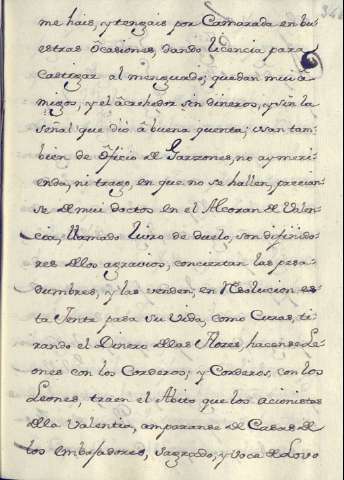 me hais, y tengais por Camarada en bu
estras Ocasiones, dando licencia para
Castigar al menguado; quedan mui â
migos, y el âcrehedor sin dineros, y sin la
señal que diô â buena quenta; usan tam
bien de Ôficio de Garzones, no ay meri
enda, ni trago, en que no se hallen, precian
se de mui doctos en el Alcoran de Valen
cia, llamado livro de duelo, son difinido
res de los agravios, conciertan las pesa
dumbres, y las venden, en Resolucion es
ta Jente pasa su Vida, como Curas, ti
rando el Dinero de las Flores, hacense Le
ones con los Corderos; y Corderos, con los
Leones, traen el Abito que los acionistas
de la Valentia, amparanse de Casas de
los embajadores, sagrado, y voca de Lovo